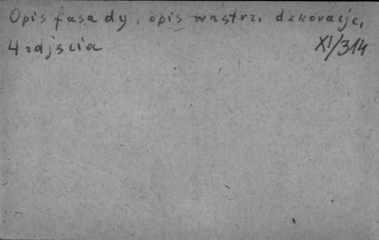 Opis fasady, opis wnętrz, dekoracje,
4 zdjęcia XI/314